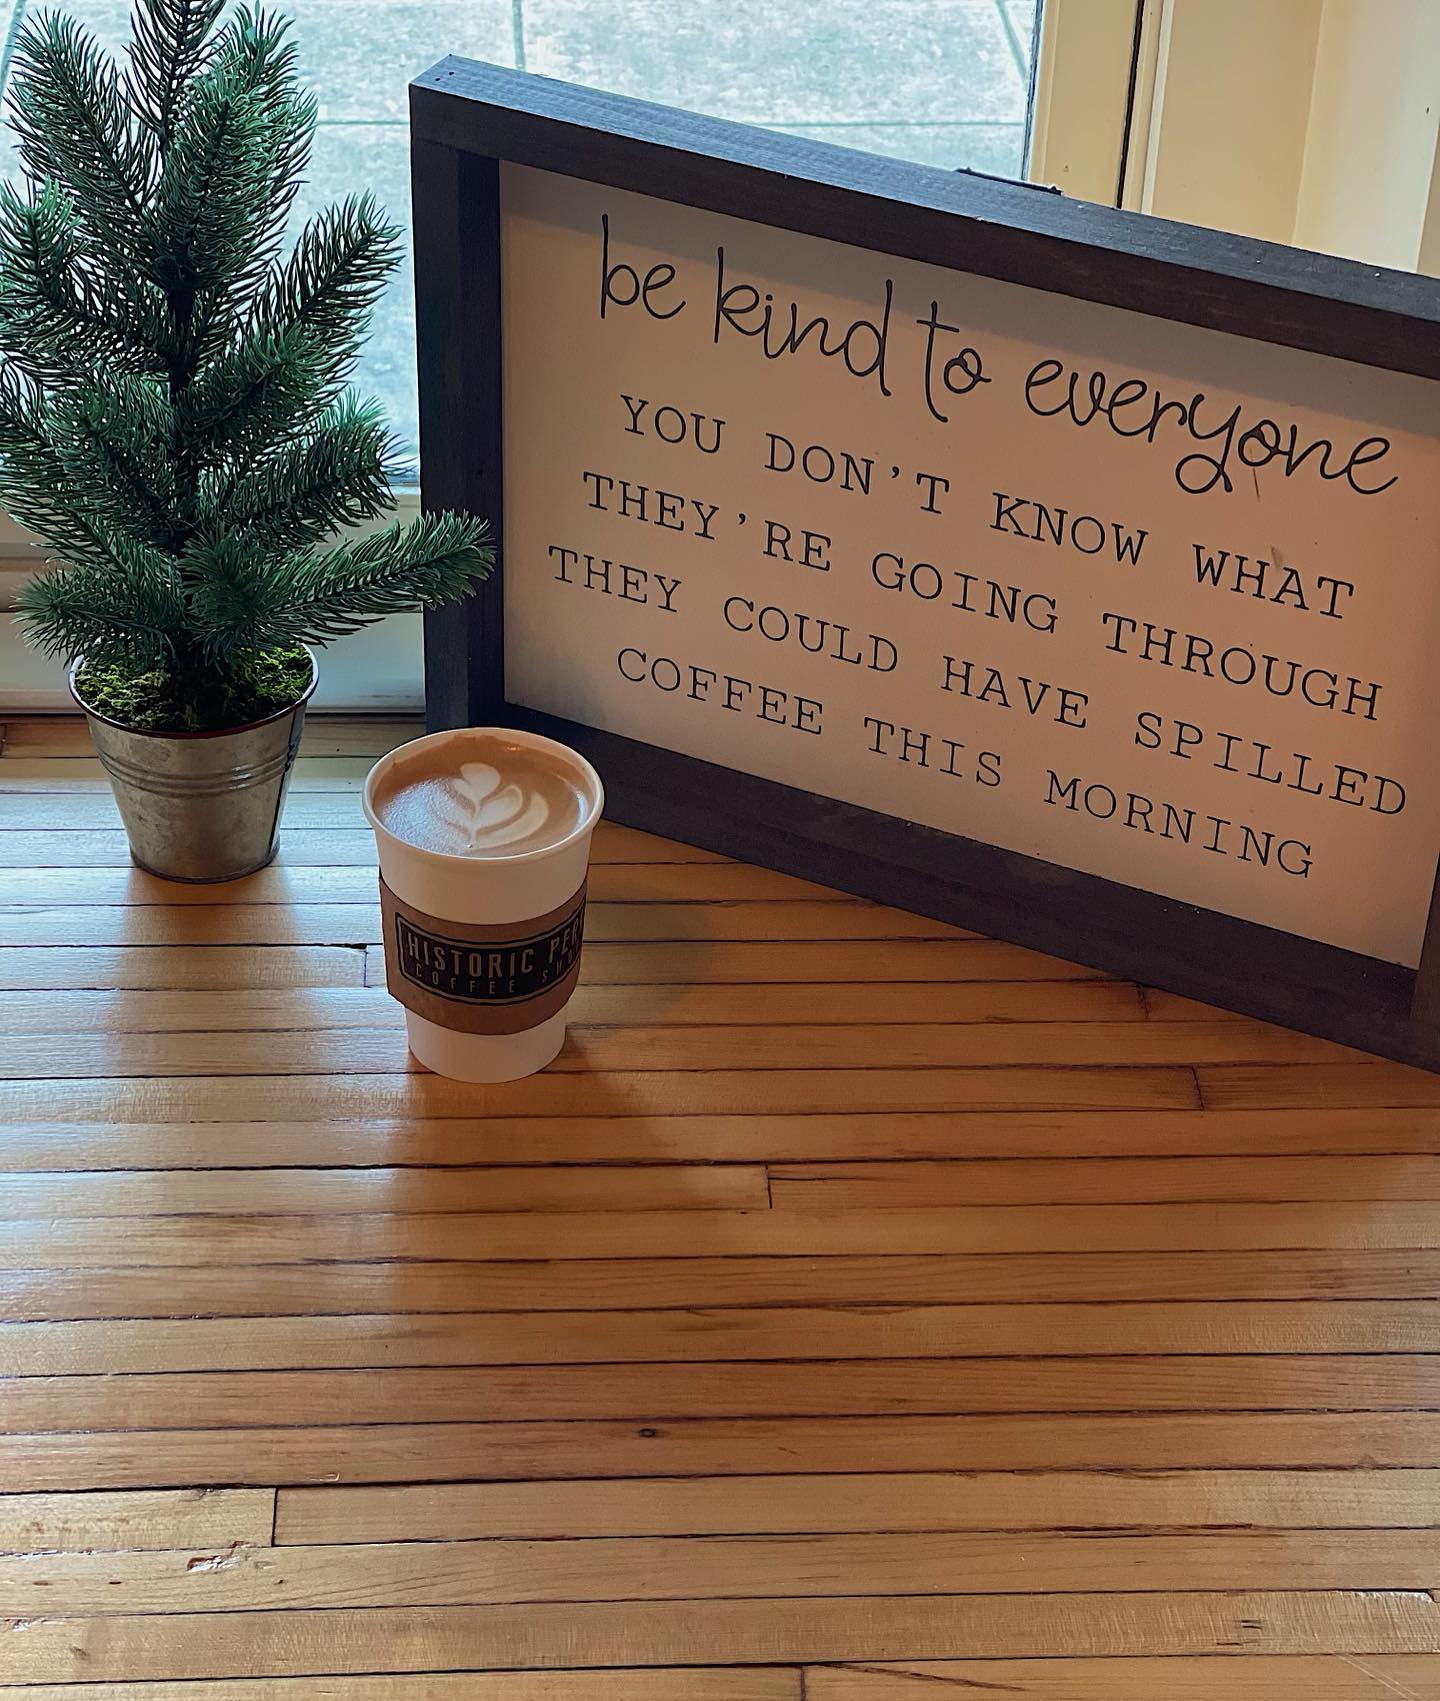 be kind to everyone
YOU DON'T KNOW WHAT
THEY'RE GOING THROUGH
THEY COULD HAVE SPILLED
COFFEE THIS MORNING
HISTORIC
COFFEE